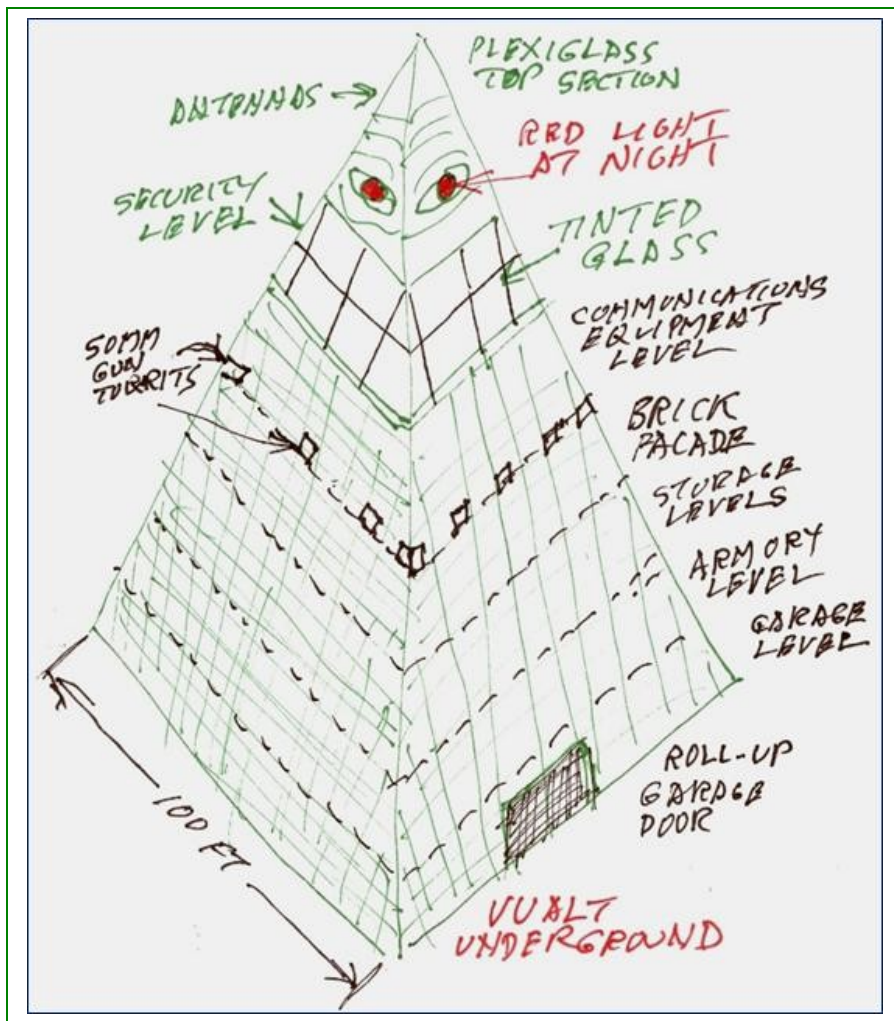 PLEXIGLASS
TOP SECTION
ANTENNAS
RED LIGHT
AT NIGHT
SECURITY
LEVEL
TINTED
GLASS
COMMUNICATIONS
EQUIPMENT
LEVEL
50MM
GUN
TURRITS
BRICK
FACADE
STORAGE
LEVELS
ARMORY
LEVEL
GARAGE
LEVEL
ROLL-UP
GARAGE
DOOR
100 FT
VUALT
UNDERGROUND